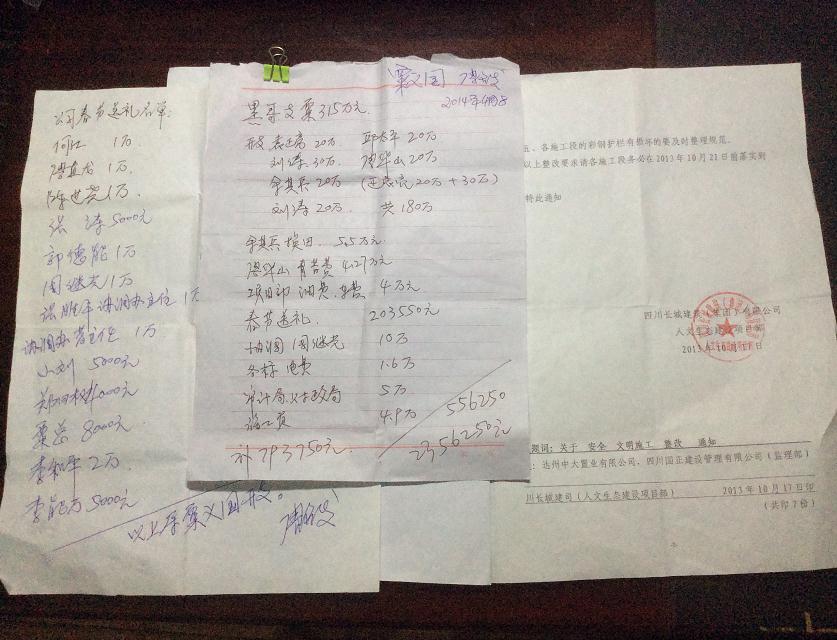 公司春节送礼名单:
何江 1万
1万
1万
张涛 5000元
郭德能 1万
周继尧 1万
张胜平 协调办主任 1万
协调办 主任 1万
小刘 5000元
000元
粟总 8000元
李和平 2万
李能万 5000元
以上 粟义国
粟义国
2014年
黑哥支票315万元
20万 邱太平 20万
刘涛 30万 唐华山 20万
余其兵 20万 (还 20万+30万)
刘涛 20万 共180万
余其兵 5.5万元
唐华山 4.27万元
项目部 油费、 4万元
春节送礼 203550元
协调 周继尧 10万
各标 电费 1.6万
审计局、财政局 5万
施工员 4.9万
补793750元
556250
2356250元
五、各施工段的彩钢护栏有损坏的要及时整理规范。
以上整改要求请各施工段务必在2013年10月21日前落实到
特此通知
四川长城建筑(集团)有限公司
人文生态建设项目部
2013年10月17日
题词:关于 安全 文明施工 整改 通知
:达州中大置业有限公司、四川国正建设管理有限公司(监理部)
川长城建司(人文生态建设项目部) 2013年10月17日印
(共印7份)